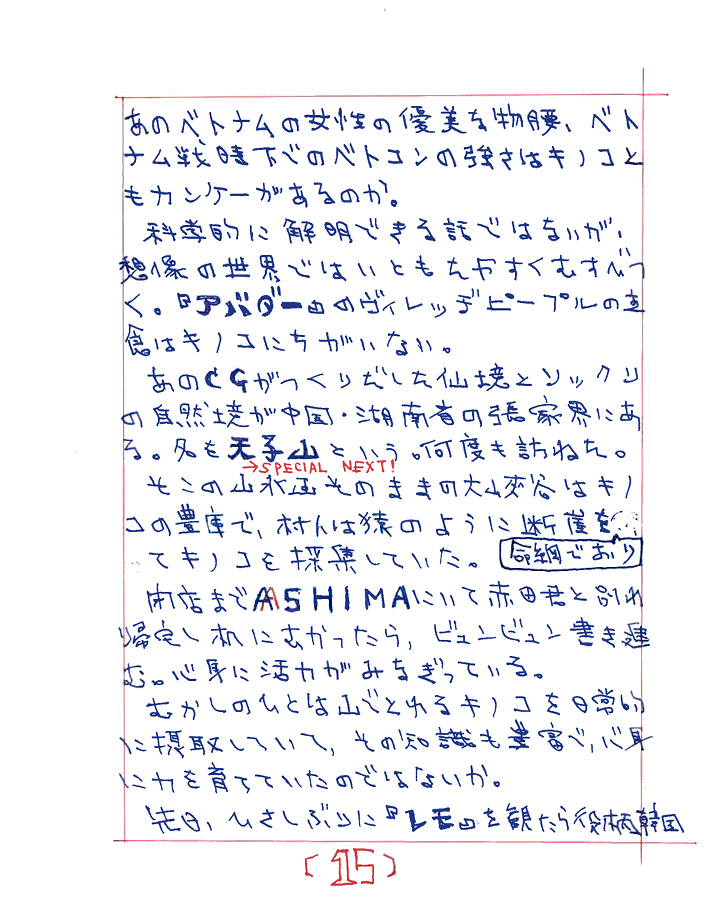 あのベトナムの女性の優美な物腰、ベト
ナム戦時下でのベトコンの強さはキノコと
もカンケーがあるのか。
科学的に解明できる話ではないが、
想像の世界ではいともたやすくむすびつ
く。『アバター』のヴィレッヂピープルの主
食はキノコにちがいない。
あのCGがつくりだした仙境とソックリ
の自然境が中国・湖南省の張家界にあ
る。名を天子山という。何度も訪ねた。
→SPECIAL NEXT!
そこの山水画そのままの大山峡谷はキノ
コの豊庫で、村人は猿のように断崖を
命綱でおり
てキノコを採集していた。
閉店までASHIMAにいて赤田君と別れ
帰宅し机にむかったら、ビュンビュン書き進
む。心身に活力がみなぎっている。
むかしのひとは山でとれるキノコを日常的
に摂取していて、その知識も豊富で、心身
に力を育てていたのではないか。
先日、ひさしぶりに『レモ』を観たら役柄韓国
(15)